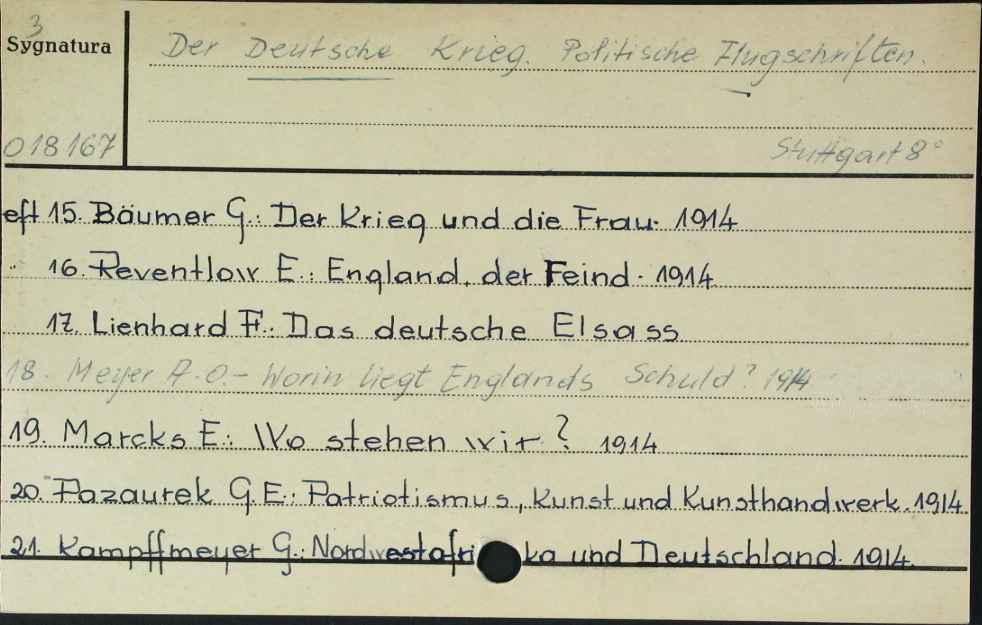 3
Sygnatura
Der Deutsche Krieg. Politische Flugschriften.
018167
Stuttgart 8°
eft 15. Bäumer G.: Der Krieg und die Frau. 1914
" 16. Reventlow E.: England, der Feind. 1914
17. Lienhard F.: Das deutsche Elsass
18. Meyer A.O. - Worin liegt Englands Schuld? 1914
19. Marcks E.: Wo stehen wir? 1914
20. Pazaurek G.E.: Patriotismus, Kunst und Kunsthandwerk. 1914
21. Kampffmeyer G.: Nordwestafrika und Deutschland. 1914.